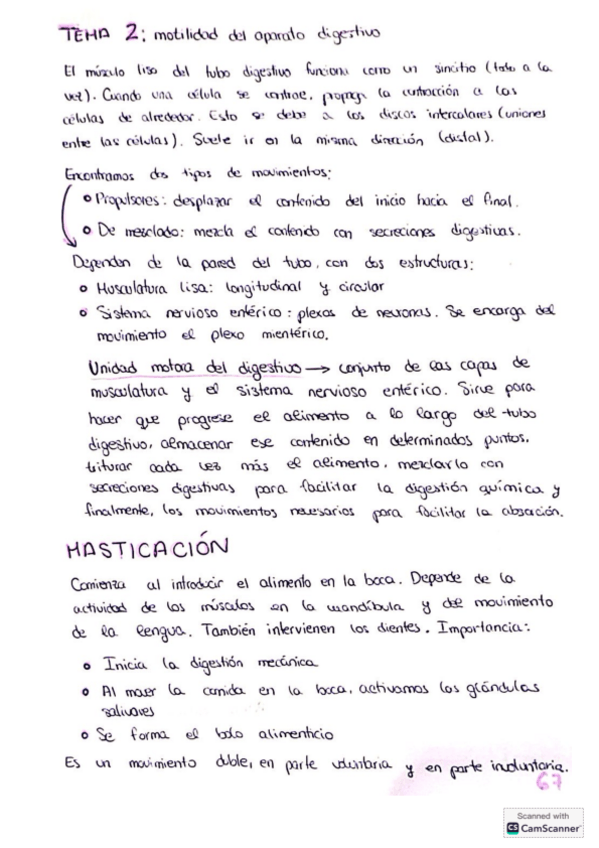 TEMA 2: motilidad del aparato digestivo
El músculo liso del tubo digestivo funciona como un sincitio (todo a la
vez). Cuando una célula se contrae, propaga la contracción a las
células de alrededor. Esto se debe a los discos intercalares (uniones
entre las células). Suele ir en la misma dirección (distal).
Encontramos dos tipos de movimientos:
• Propulsores: desplazar el contenido del inicio hacia el final.
• De mezclado: mezcla el contenido con secreciones digestivas.
Dependen de la pared del tubo, con dos estructuras:
• Musculatura lisa: longitudinal y circular
• Sistema nervioso entérico: plexos de neuronas. Se encarga del
movimiento el plexo mientérico.
Unidad motora del digestivo → conjunto de las capas de
musculatura y el sistema nervioso entérico. Sirve para
hacer que progrese el alimento a lo largo del tubo
digestivo, almacenar ese contenido en determinados puntos,
triturar cada vez más el alimento, mezclarlo con
secreciones digestivas para facilitar la digestión química y
finalmente, los movimientos necesarios para facilitar la absorción.
MASTICACIÓN
Comienza al introducir el alimento en la boca. Depende de la
actividad de los músculos en la mandíbula y del movimiento
de la lengua. También intervienen los dientes. Importancia:
• Inicia la digestión mecánica
• Al mover la comida en la boca, activamos las glándulas
salivares
• Se forma el bolo alimenticio
Es un movimiento doble, en parte voluntaria y en parte involuntaria.
67
Scanned with
CS CamScanner